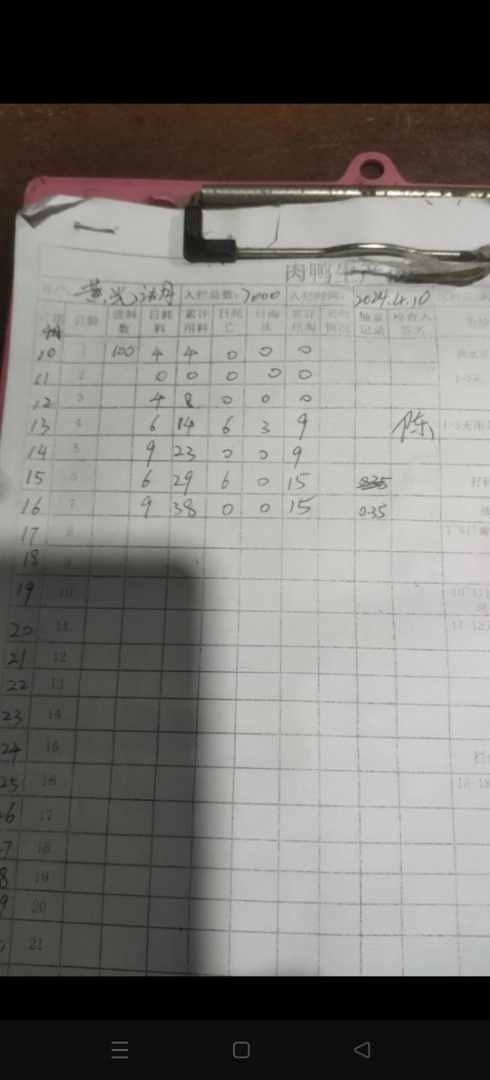 肉鸭生产
入栏总数: 7000 入栏时间: 2024.4.10
日龄 进料数 日耗料 累计用料 日死亡 日淘汰 累计死淘 天气情况 抽重记录 检查人签名
10 1 100 4 4 0 0 0
11 2 0 0 0 0 0
12 3 4 8 0 0 0
13 4 6 14 6 3 9 陈
14 5 9 23 0 0 9
15 6 6 29 6 0 15 0.35
16 7 9 38 0 0 15 0.35
17 8
18 9
19 10
20 11
21 12
22 13
23 14
24 15
25 16
6 17
7 18
8 19
9 20
21